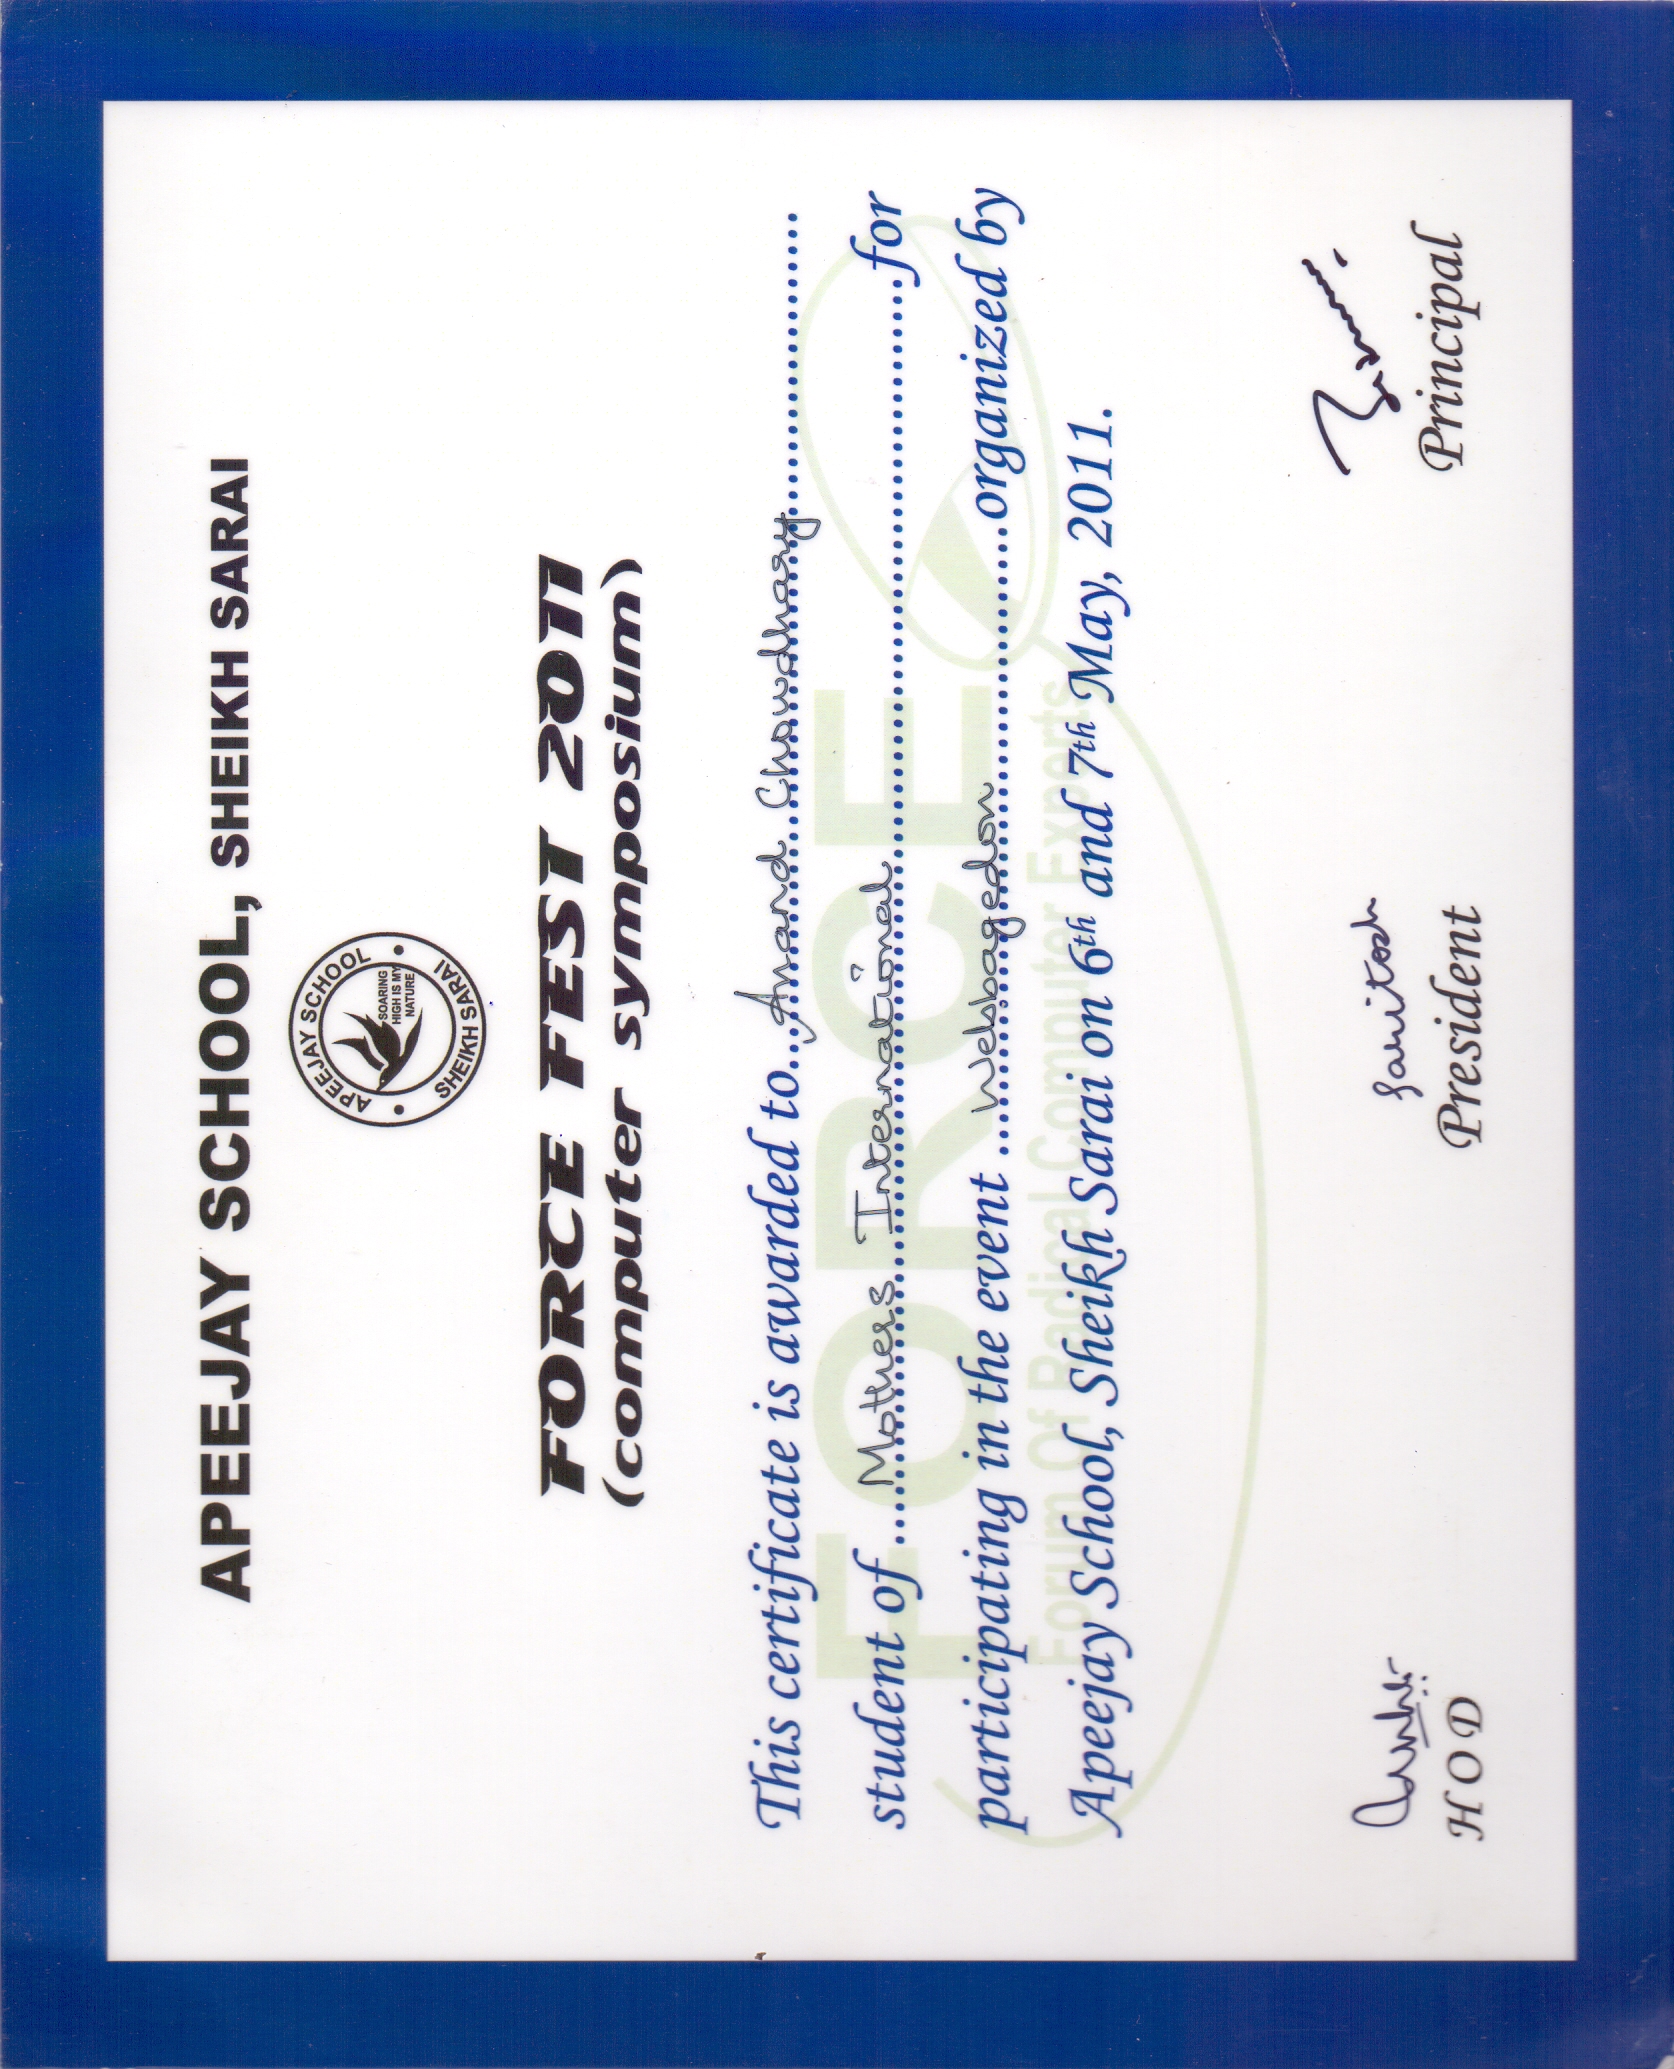 APEEJAY SCHOOL, SHEIKH SARAI
APEEJAY SCHOOL
SOARING
HIGH IS MY
NATURE
SHEIKH SARAI
FORCE FEST 2011
(computer symposium)
This certificate is awarded to...Anand Chowdhary...
student of ...Mothers International...for
participating in the event ...Webbagedon...organized by
Apeejay School, Sheikh Sarai on 6th and 7th May, 2011.
FORCE
Forum Of Radical Computer Experts
HOD
President
Principal